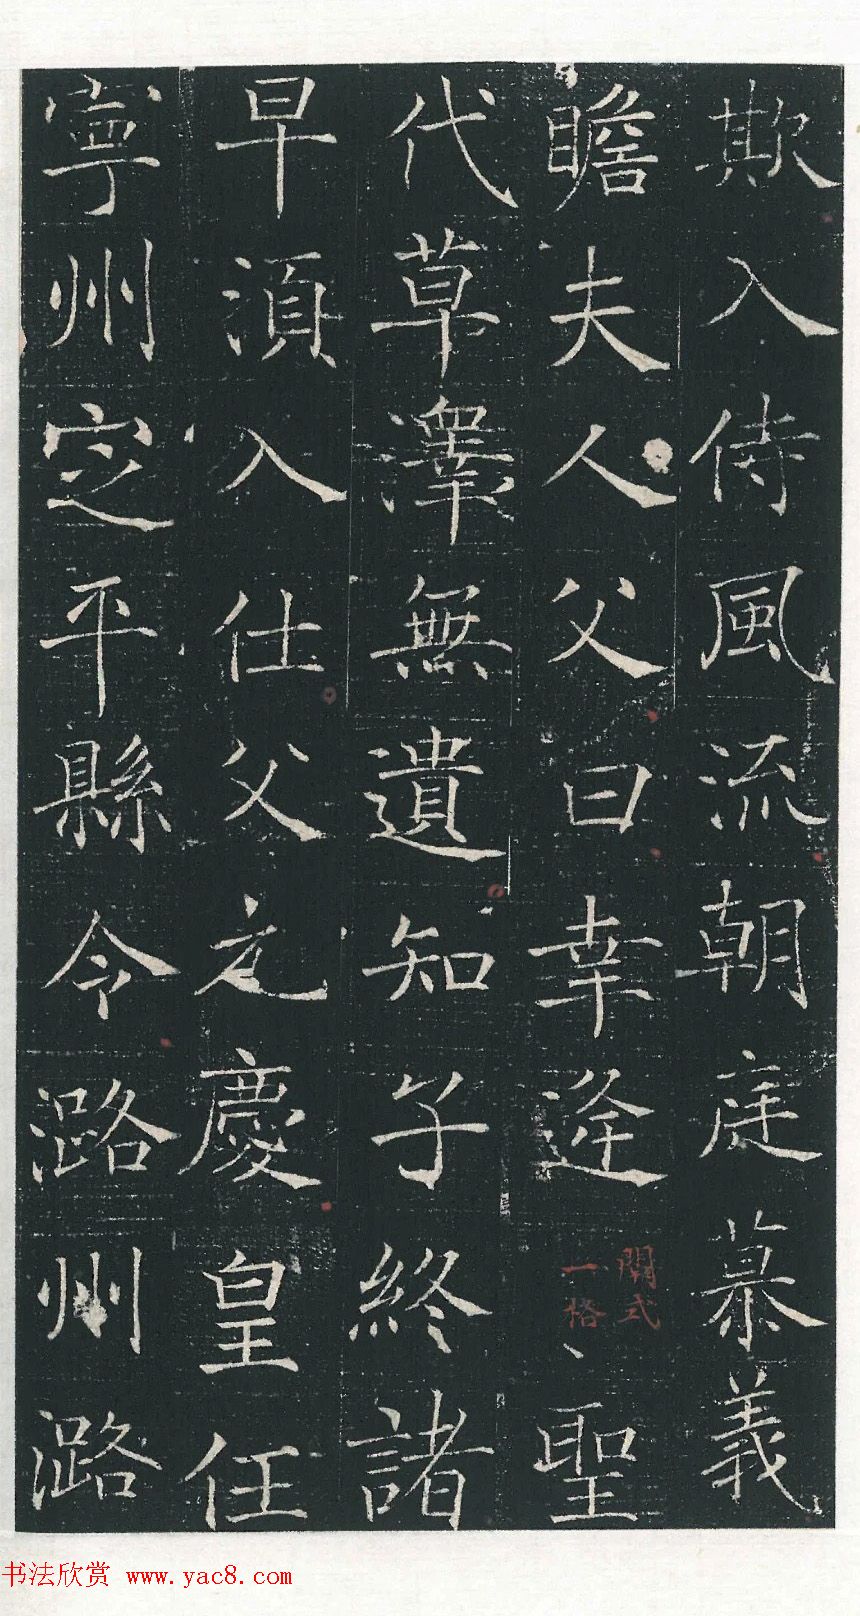 欺入侍風流朝庭慕義
瞻夫人父曰幸逢聖
闕式
一格
代草澤無遺知子終諸
早湏入仕父之慶皇任
寧州定平縣令潞州潞
书法欣赏 www.yac8.com